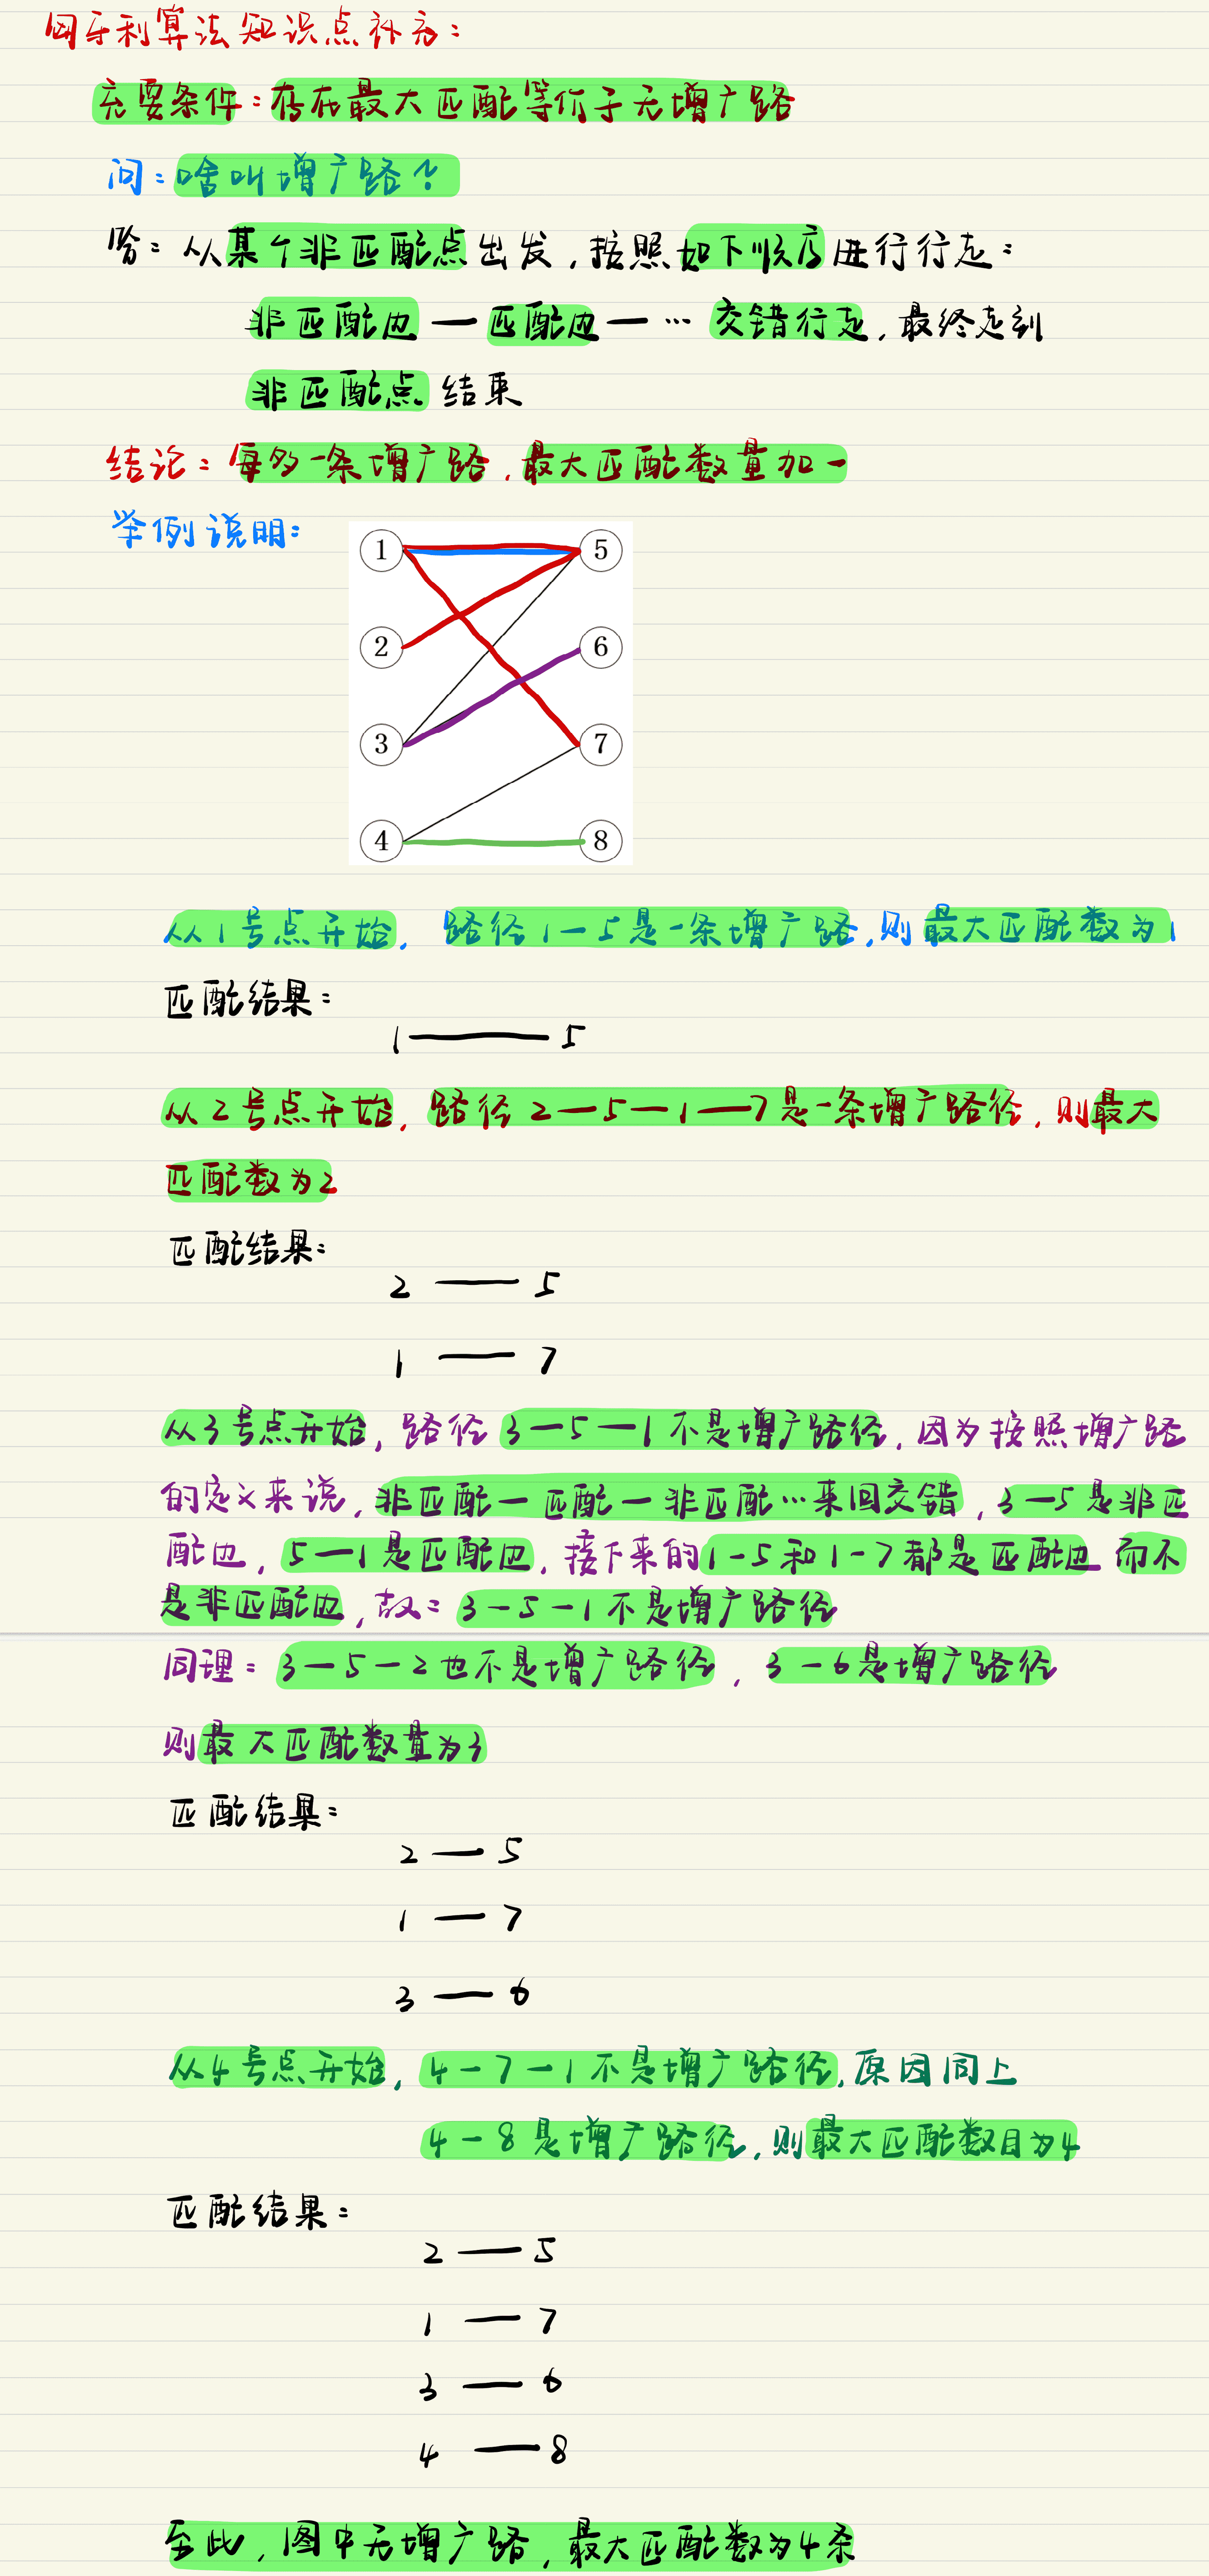 匈牙利算法知识点补充：
充要条件：存在最大匹配等价于无增广路
问：啥叫增广路？
答：从某个非匹配点出发，按照如下顺序进行行走：
非匹配边一匹配边一… 交错行走，最终走到
非匹配点 结束
结论：每多一条增广路，最大匹配数量加一
举例说明：
1 5
2 6
3 7
4 8
从1号点开始，路径1—5是一条增广路，则最大匹配数为1
匹配结果：
1——5
从2号点开始，路径2—5—1—7是一条增广路径，则最大
匹配数为2
匹配结果：
2——5
1——7
从3号点开始，路径3—5—1不是增广路径，因为按照增广路
的定义来说，非匹配—匹配—非匹配…来回交错，3—5是非匹
配边，5—1是匹配边，接下来的1-5和1-7都是匹配边而不
是非匹配边，故：3-5-1不是增广路径
同理：3—5-2也不是增广路径，3-6是增广路径
则最大匹配数量为3
匹配结果：
2—5
1—7
3—6
从4号点开始，4-7-1不是增广路径，原因同上
4-8是增广路径，则最大匹配数目为4
匹配结果：
2—5
1—7
3—6
4—8
至此，图中无增广路，最大匹配数为4条